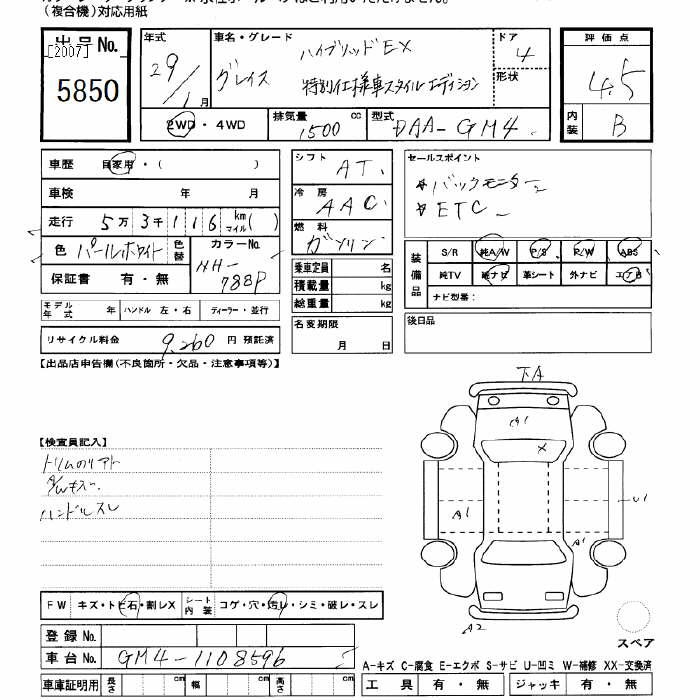 (複合機)対応用紙
出品No.
[2007]
5850
年式
29/1月
車名・グレード
グレイス
ハイブリッドEX
特別仕様車スタイルエディション
ドア
4
形状
評価点
4.5
内装
B
2WD・4WD
排気量
1500 cc
型式
DAA-GM4
車歴 自家用・( )
車検 年 月
走行 5万3千116 km マイル( )
色 パールホワイト 色替
カラーNo.
NH-788P
保証書 有・無
モデル年式 年 ハンドル 左・右 ディーラー・並行
リサイクル料金 9,260 円 預託済
シフト
AT
冷房
AAC
燃料
ガソリン
乗車定員 名
積載量 kg
総重量 kg
名変期限
月 日
セールスポイント
バックモニター
ETC
装備品
S/R 純A/W P/S P/W ABS
純TV 純ナビ 革シート 外ナビ エアB
ナビ型番:
後日品
【出品店申告欄(不良箇所・欠品・注意事項等)】
【検査員記入】
トリムのリアト
A/Wキズ
ハンドルスレ
下A
A1
X
A1
A1
U1
A2
スペア
FW キズ・トビ石・割レX
シート内装 コゲ・穴・汚レ・シミ・破レ・スレ
登録No.
車台No. GM4-1108596
車庫証明用 長さ cm 幅 cm 高さ cm
A-キズ C-腐食 E-エクボ S-サビ U-凹ミ W-補修 XX-交換済
工具 有・無 ジャッキ 有・無